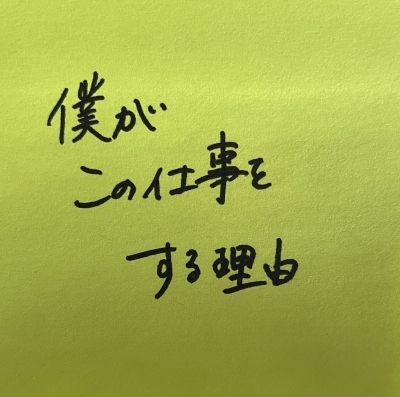 僕が
この仕事を
する理由